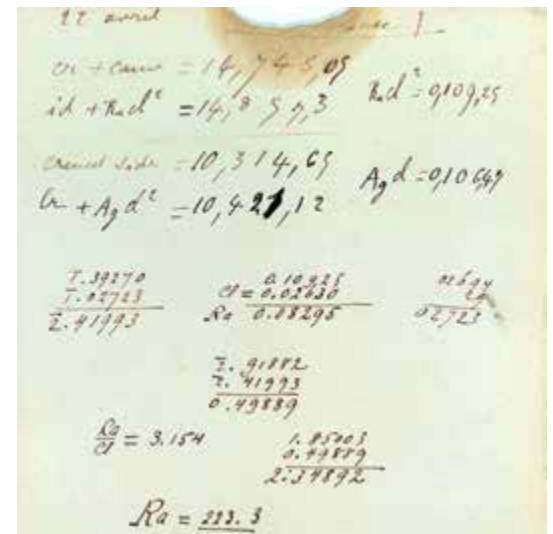 22 avril
cr + = 14,745,05
id + Racl² = 14,854,3 Racl² = 0,109,25
creuset vide = 10,314,65
Cr + Agcl² = 10,421,12 Agcl = 0,10647
1̅.39270 0.10925 02694
1̅.02723 Cl = 0.02630 29
2̅.41993 Ra 0.08295 02723
2̅.91882
2̅.41993
0.49889
Ra/Cl = 3.154 1.85003
0.49889
2.34892
Ra = 223.3